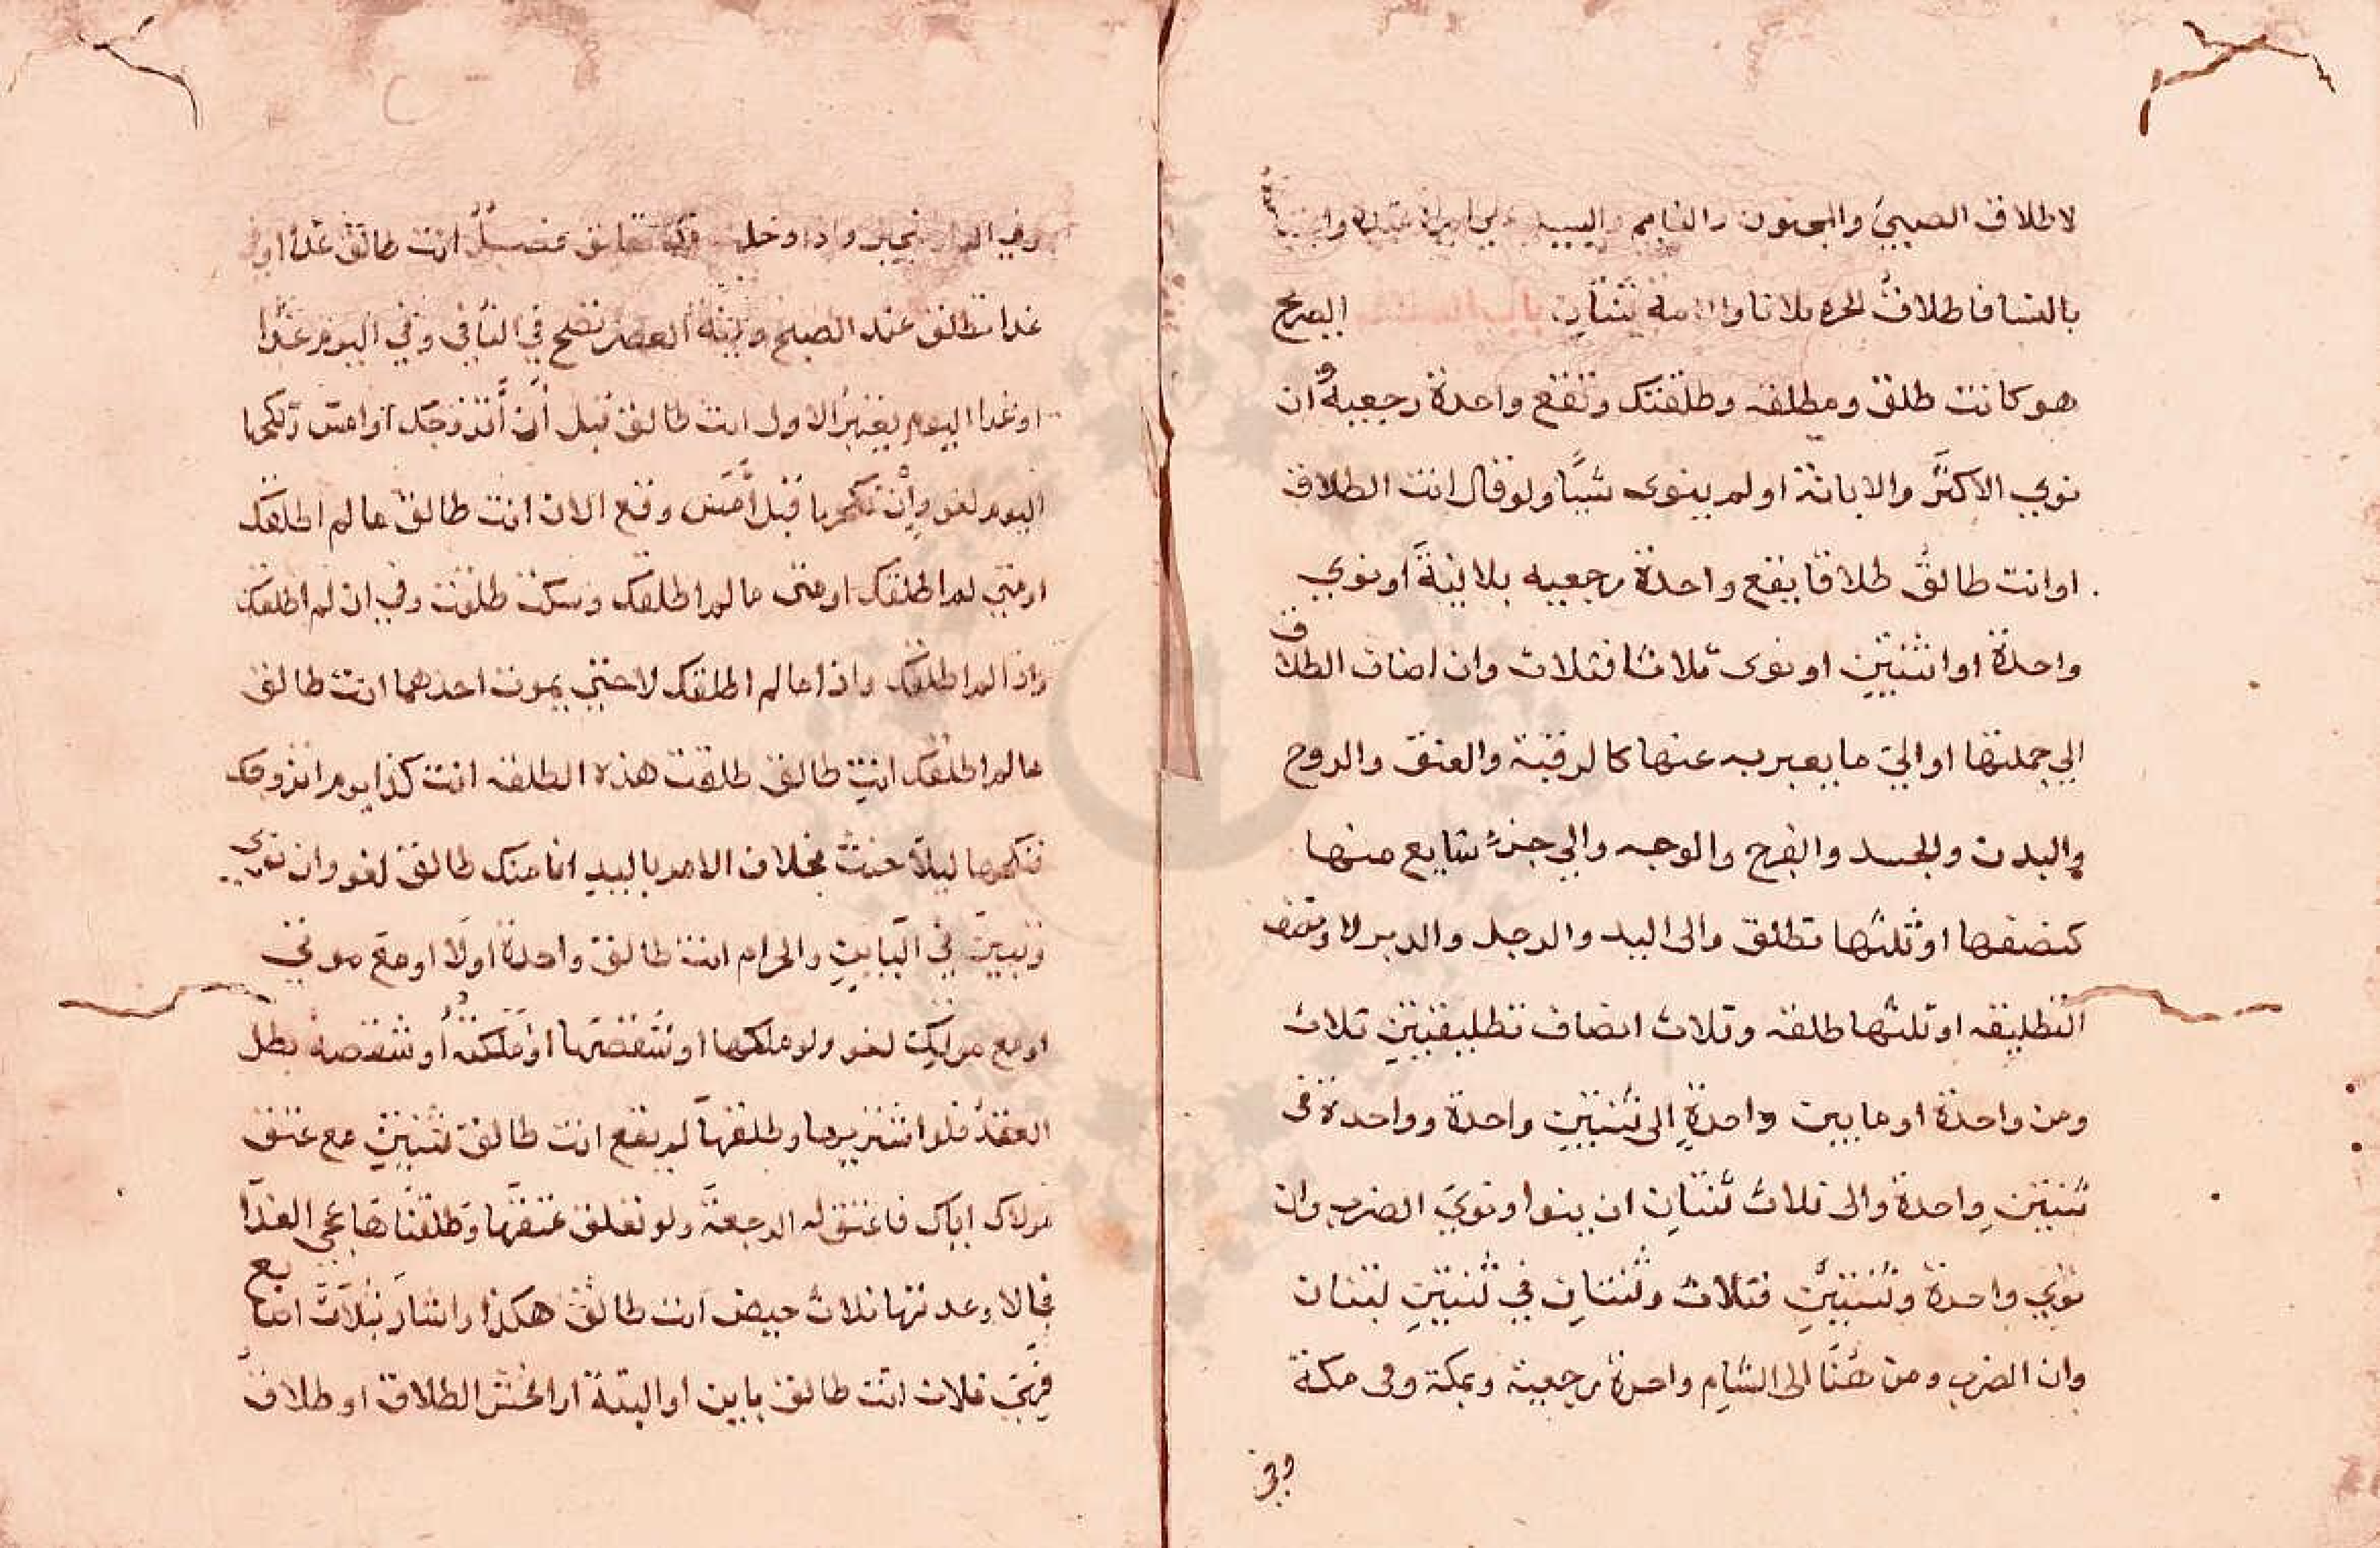 لا طلاق الصبي والمجنون والنايم والسيد علي امراة عبده واعتباره
بالنسا فطلاق الحره ثلاثا والامة ثنتان باب الصريح
هو كانت طلق ومطلقه وطلقتك وتقع واحدة رجعية وان
نوي الاكثر والابانة او لم ينوى شيا ولو قال انت الطلاق
او انت طالق طلاقا يقع واحدة رجعيه بلا نية او نوي
واحدة او اثنتين او نوى ثلاثا فثلاث وان اضاف الطلاق
الي جملتها او الي ما يعبر به عنها كالرقبة والعنق والروح
والبدن والجسد والفرج والوجه والي جزء شايع منها
كنصفها او ثلثها تطلق والى اليد والرجل والدبر لا ونصف
التطليقه او ثلثها طلقه وثلاث انصاف تطليقتين ثلاث
ومن واحدة او ما بين واحدة الى ثنتين واحدة وواحدة في
ثنتين واحدة والى ثلاث ثنتان ان ينوا ونوي الضرب وان
نوي واحدة وثنتين فثلاث وثنتان في ثنتين ثنتان
وان الضرب ومن هنا الى الشام واحدة رجعية وبمكة وفى مكة
وفي
وفي الدار تنجيز واذا دخلت مكة تعليق فصل انت طالق غدا او في
غدا تطلق عند الصبح ونية العصر تصح في الثاني وفي اليوم غدا
او غدا اليوم يعتبر الاول انت طالق قبل ان اتزوجك او امس ونكحها
اليوم لغو وان نكحها قبل امس وقع الان انت طالق ما لم اطلقك
او متي لم اطلقك او متى ما لم اطلقك وسكت طلقت وفي ان لم اطلقك
واذا لم اطلقك واذا ما لم اطلقك لا حتي يموت احدهما انت طالق
ما لم اطلقك انت طالق طلقت هذه الطلقه انت كذا يوم اتزوجك
فنكحها ليلا حنث بخلاف الامر باليد انا منك طالق لغو وان نوي
وتبين في الباين والحرام انت طالق واحدة اولا او مع موتي
او مع موتك لغو ولو ملكها او شقصها او ملكته او شقصه بطل
العقد فلو اشتريها وطلقها لم يقع انت طالق ثنتين مع عتق
مولاك اياك فاعتق له الرجعة ولو تعلق عتقها وطلقتاها بمجي الغد
فجا لا وعدتها ثلاث حيض انت طالق هكذا واشار بثلاث اصابع
فهي ثلاث انت طالق باين او البتة او افحش الطلاق او طلاق